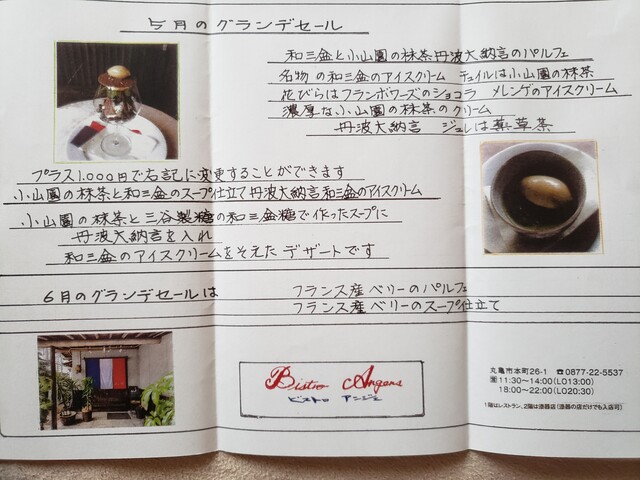 5月のグランデセール
和三盆と小山園の抹茶丹波大納言のパルフェ
名物の和三盆のアイスクリーム テュイルは小山園の抹茶
花びらはフランボワーズのショコラ メレンゲのアイスクリーム
濃厚な小山園の抹茶のクリーム
丹波大納言 ジュレは薬草茶
プラス1.000円で右記に変更することができます
小山園の抹茶と和三盆のスープ仕立て丹波大納言和三盆のアイスクリーム
小山園の抹茶と三谷製糖の和三盆糖で作ったスープに
丹波大納言を入れ
和三盆のアイスクリームをそえたデザートです
6月のグランデセールは
フランス産ベリーのパルフェ
フランス産ベリーのスープ仕立て
Bistro Angers
ビストロ アンジェ
丸亀市本町26-1 ☎0877-22-5537
11:30~14:00(LO13:00)
18:00~22:00(LO20:30)
1階はレストラン、2階は漆器店(漆器の店だけでも入店可)